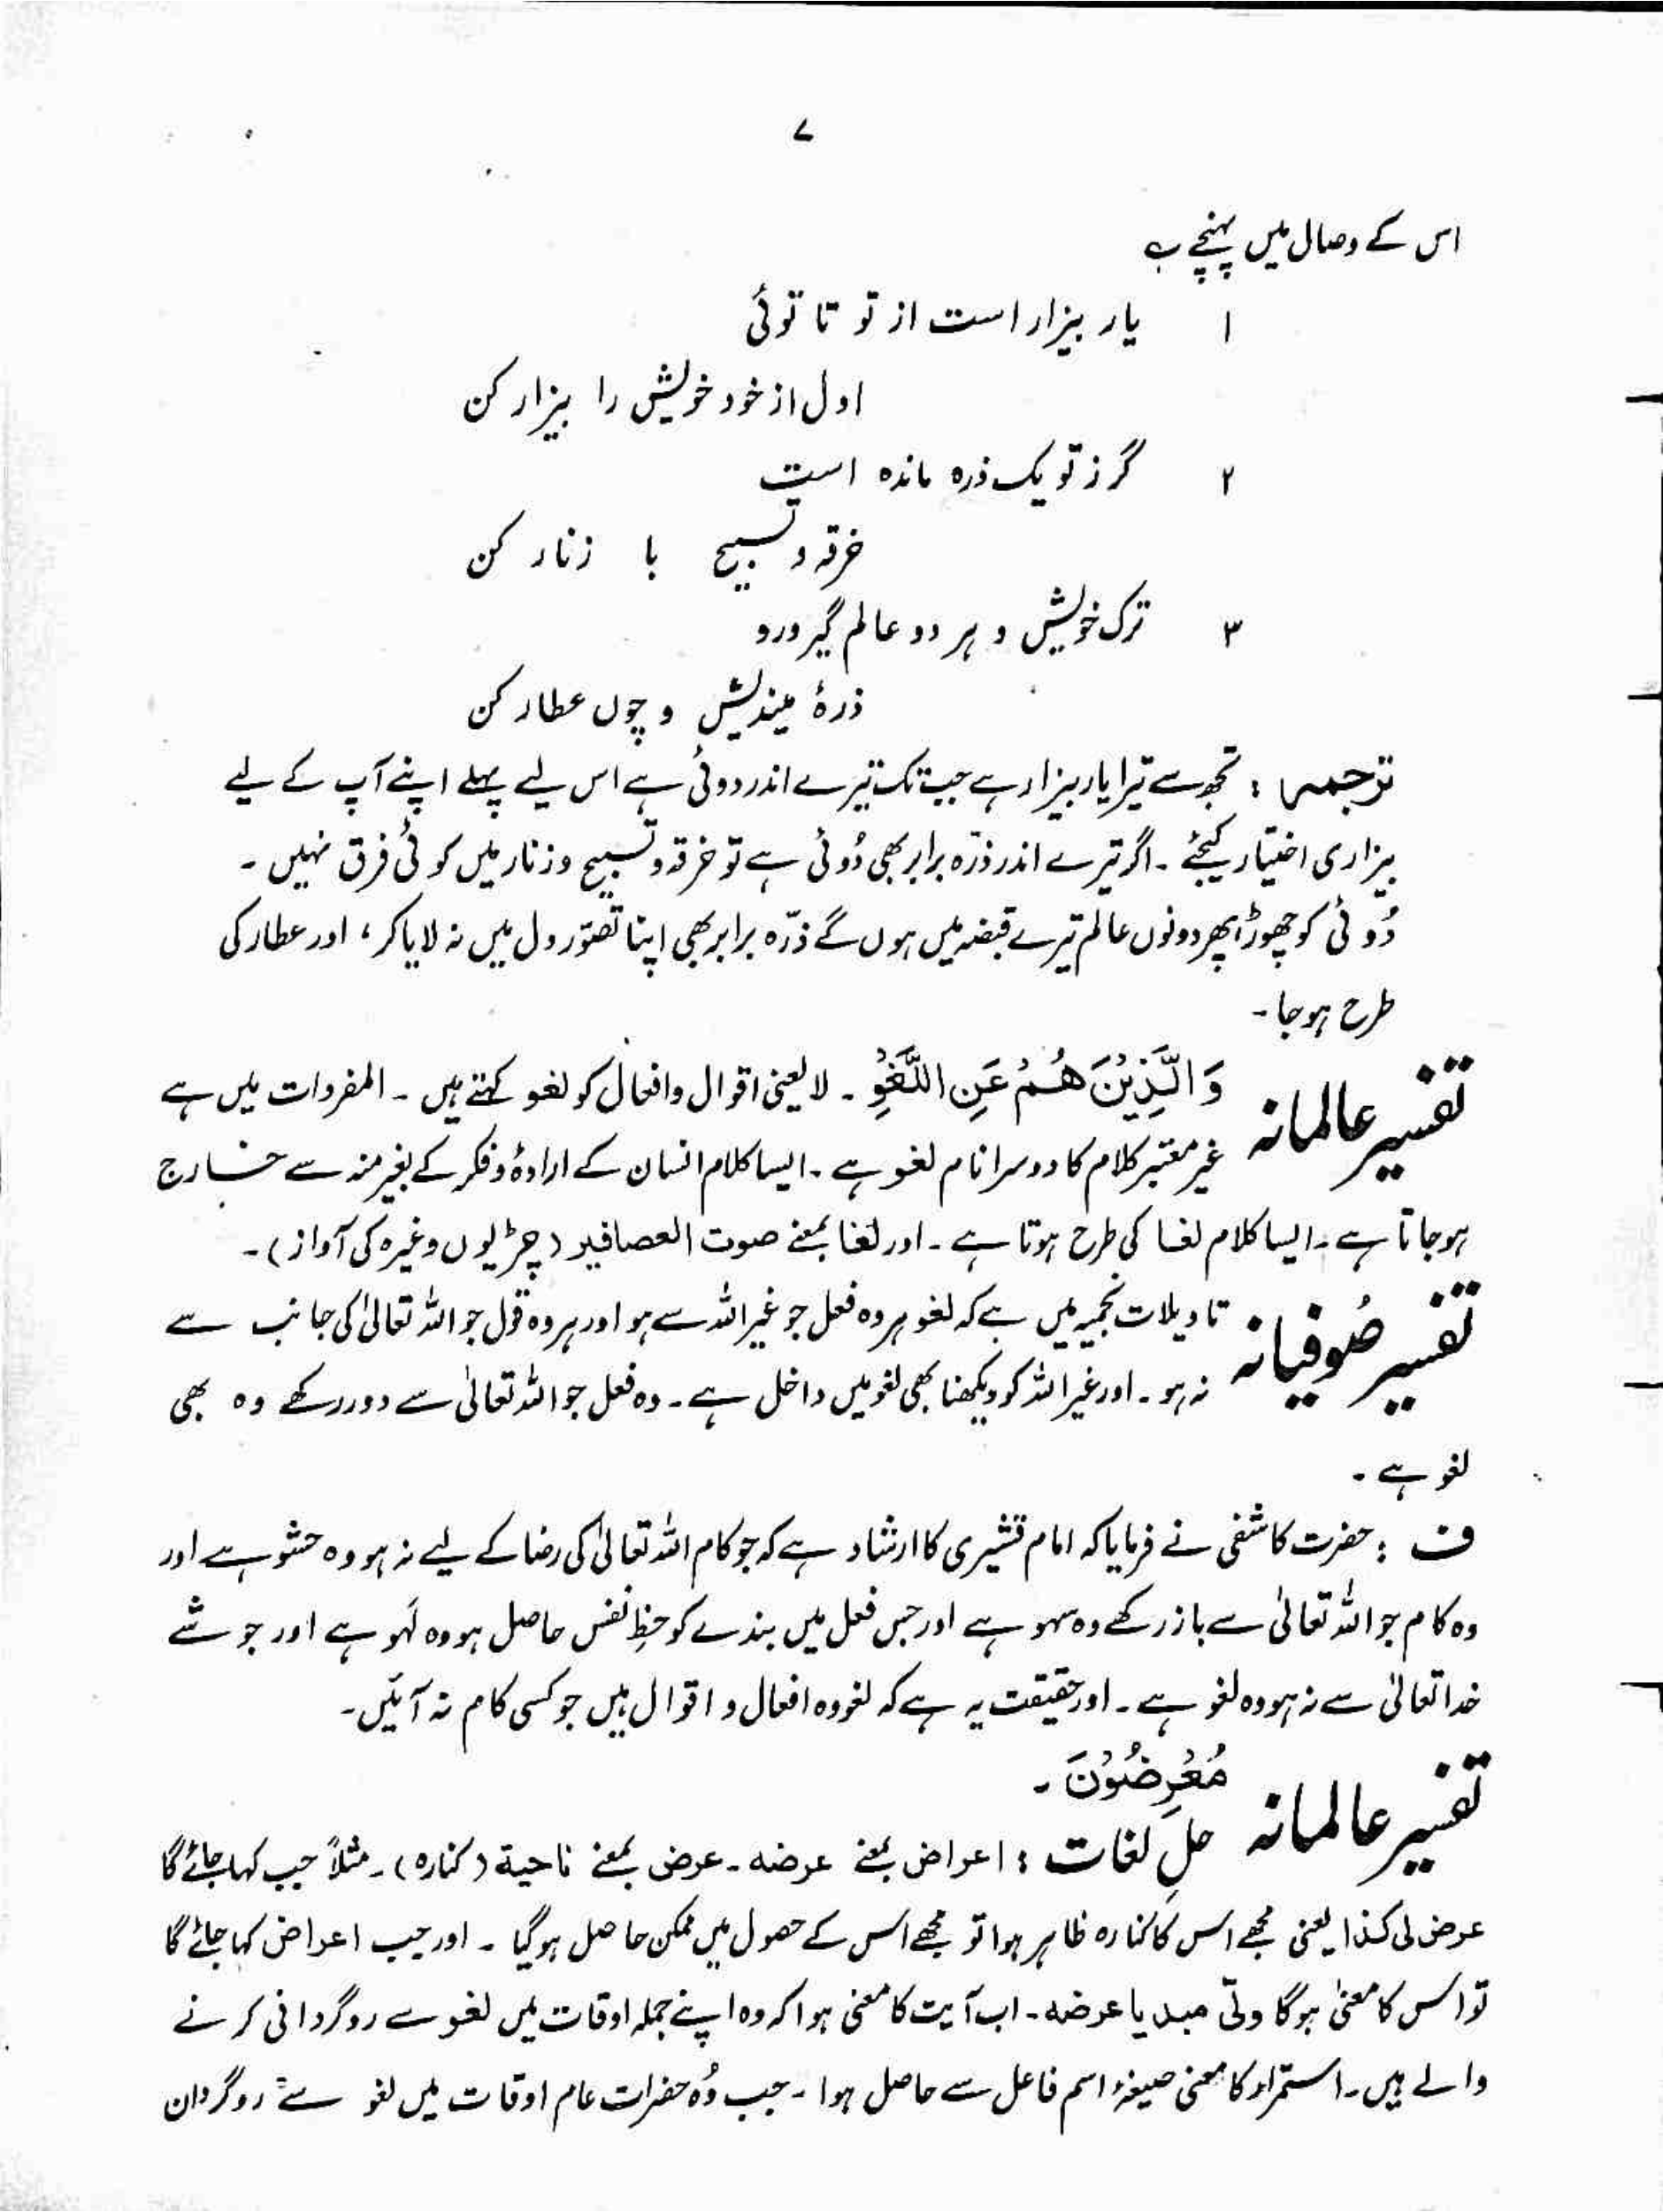 ۷
اس کے وصال میں پہنچے ؎
۱ یار بیزار است از تو تا توئی
اول از خود خویش را بیزار کن
۲ گر ز تو یک ذره مانده است
خرقہ و تسبیح با زنار کن
۳ ترک خویش و ہر دو عالم گیر ورو
ذرۂ میندیش و چوں عطار کن
ترجمہ : تجھ سے تیرا یار بیزار ہے جب تک تیرے اندر دوئی ہے اس لیے پہلے اپنے آپ کے لیے
بیزاری اختیار کیجئے ۔ اگر تیرے اندر ذرّہ برابر بھی دُوئی ہے تو خرقہ و تسبیح و زنار میں کوئی فرق نہیں ۔
دُوئی کو چھوڑ پھر دونوں عالم تیرے قبضہ میں ہوں گے ذرّہ برابر بھی اپنا تصوّر دل میں نہ لایا کر ، اور عطار کی
طرح ہو جا ۔
تفسیر عالمانہ وَالَّذِیْنَ هُمْ عَنِ اللَّغْوِ ۔ لا یعنی اقوال و افعال کو لغو کہتے ہیں ۔ المفردات میں ہے
غیر معتبر کلام کا دوسرا نام لغو ہے ۔ ایسا کلام انسان کے ارادۂ و فکر کے بغیر منہ سے خارج
ہو جاتا ہے ۔ ایسا کلام لغا کی طرح ہوتا ہے ۔ اور لغا بمعنے صوت العصافیر (چڑیوں وغیرہ کی آواز) ۔
تفسیر صُوفیانہ تاویلات نجمیہ میں ہے کہ لغو ہر وہ فعل جو غیر اللہ سے ہو اور ہر وہ قول جو اللہ تعالیٰ کی جانب سے
نہ ہو ۔ اور غیر اللہ کو دیکھنا بھی لغو میں داخل ہے ۔ وہ فعل جو اللہ تعالیٰ سے دور رکھے وہ بھی
لغو ہے ۔
ف : حضرت کاشفی نے فرمایا کہ امام قشیری کا ارشاد ہے کہ جو کام اللہ تعالیٰ کی رضا کے لیے نہ ہو وہ حشو ہے اور
وہ کام جو اللہ تعالیٰ سے باز رکھے وہ سہو ہے اور جس فعل میں بندے کو حظِ نفس حاصل ہو وہ لَہو ہے اور جو شے
خدا تعالیٰ سے نہ ہو وہ لغو ہے ۔ اور حقیقت یہ ہے کہ لغو وہ افعال و اقوال ہیں جو کسی کام نہ آئیں ۔
تفسیر عالمانہ مُعْرِضُوْنَ ۔
حلِ لغات : اعراض بمعنے عرضه ۔ عرض بمعنے ناحیة (کنارہ) ۔ مثلاً جب کہا جائے گا
عرض لی کذا یعنی مجھے اس کا کنارہ ظاہر ہوا تو مجھے اس کے حصول میں تمکن حاصل ہو گیا ۔ اور جب اعراض کہا جائے گا
تو اس کا معنیٰ ہو گا ولّی مبدیا عرضه ۔ اب آیت کا معنی ہوا کہ وہ اپنے جملہ اوقات میں لغو سے روگردانی کرنے
والے ہیں ۔ استمرار کا معنی صیغۂ اسم فاعل سے حاصل ہوا ۔ جب وُہ حضرات عام اوقات میں لغو سے روگردان